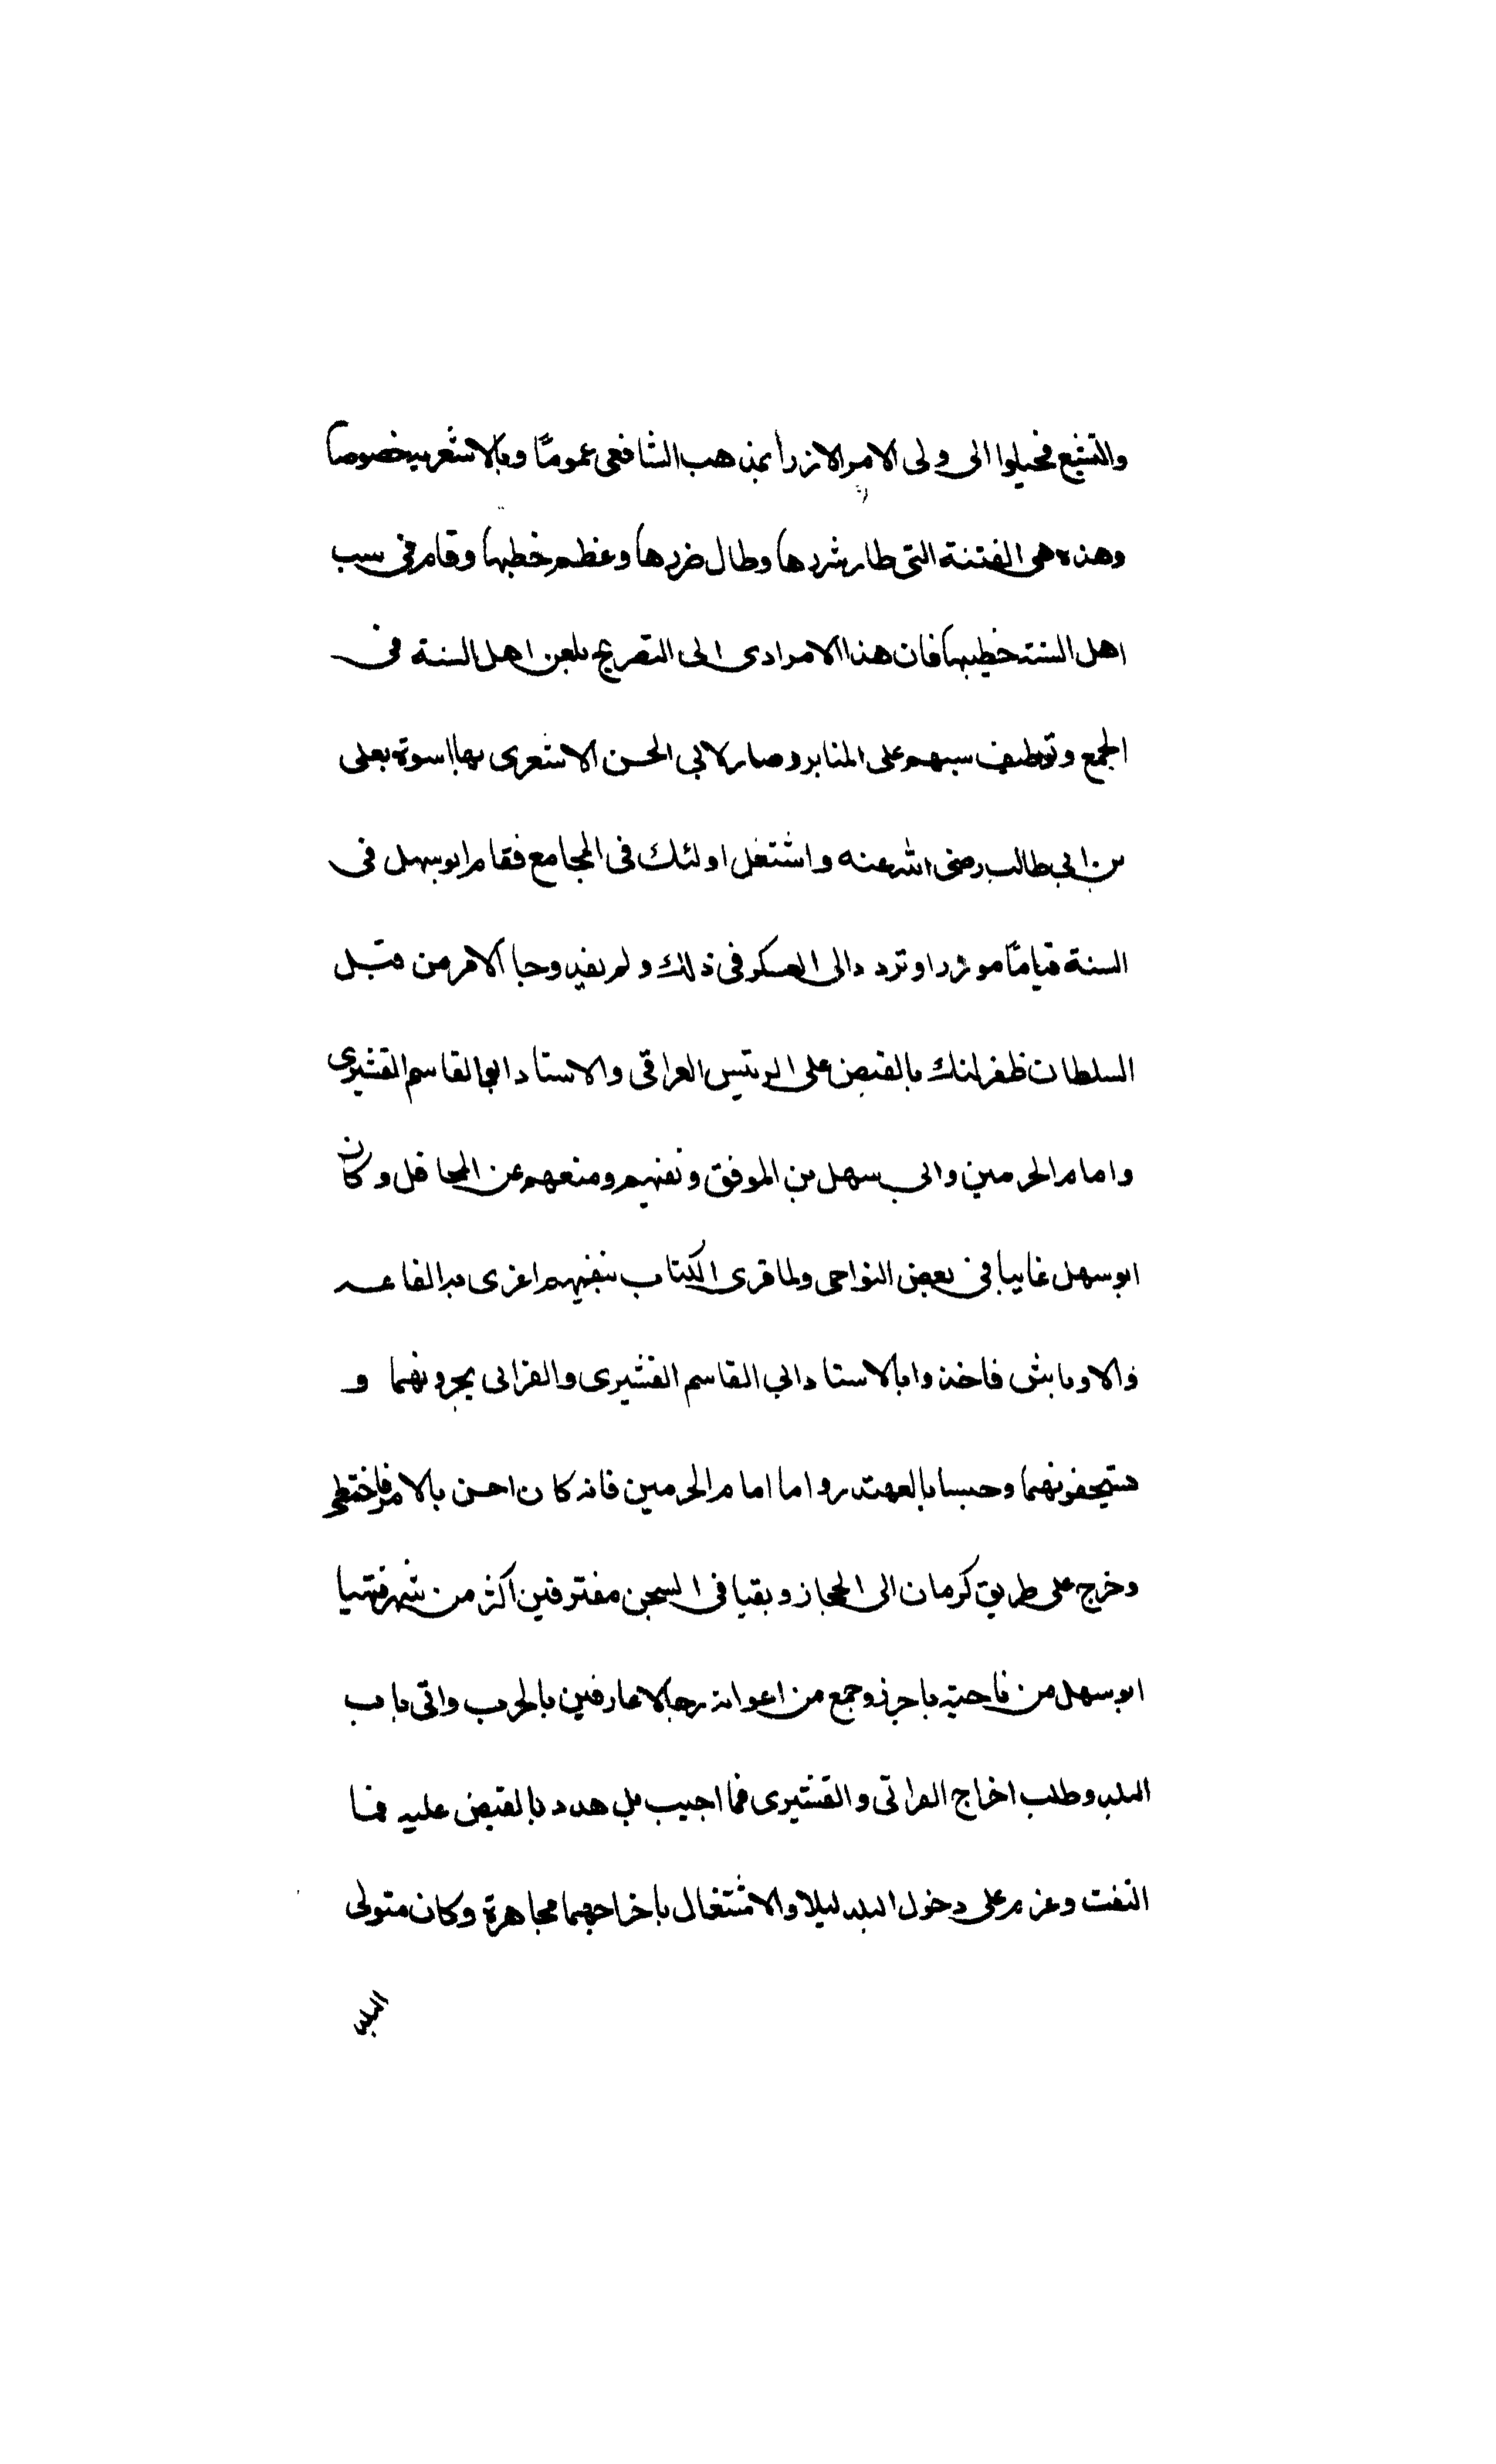 والتشيع فخيلوا الى ولى الامر الازرا بمذهب الشافعى عمومًا وبالاشعريه خصوصا
وهذه هى الفتنة التى طار شررها وطال ضررها وعظم خطبها وقام فى سب
اهل السنة خطيبها فان هذا الامر ادى الى التصريح بلعن اهل السنة فى
الجمع وتوظيف سبهم على المنابر وصار لابى الحسن الاشعرى بها اسوة بعلى
بن ابى طالب رضى الله عنه واشتغل اولئك فى المجامع فقام ابو سهل فى
السنة قيامًا موزرا وتردد الى العسكر فى ذلك ولم يفيد وجا الامر من قبل
السلطان طغرلنك بالقبض على الرئيس العراقى والاستاد ابو القاسم القشيرى
وامام الحرمين وابى سهل بن الموفق ونفيهم ومنعهم عن المحافل وكان
ابو سهل غايبا فى بعض النواحى ولما قرى الكتاب بنفيهم اغرى به الغاعه
والاوباش فاخذوا بالاستاد ابى القاسم القشيرى والفراتى يجرونهما و
يستخفونهما وحبسا بالعهندر واما امام الحرمين فانه كان احس بالامر فاختفى
وخرج على طريق كرمان الى الحجاز وبقيا فى السجن مفترقين اكثر من شهر فتهيا
ابو سهل من ناحيه باخرز وجمع من اعوانه رجالا عارفين بالحرب واتى باب
البلد وطلب اخراج الفراتى والقشيرى فما اجيب بل هدد بالقبض عليه فما
التفت وعزم على دخول البلد ليلا والاشتغال باخراجهما مجاهرة وكان متولى
البلد